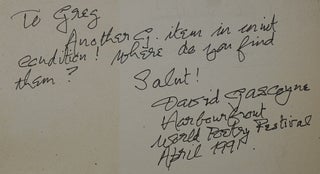 To Greg
Another G. item in mint
condition! Where do you find
them?
Salut!
David Gascoyne
Harbourfront
World Poetry Festival
April 1991.